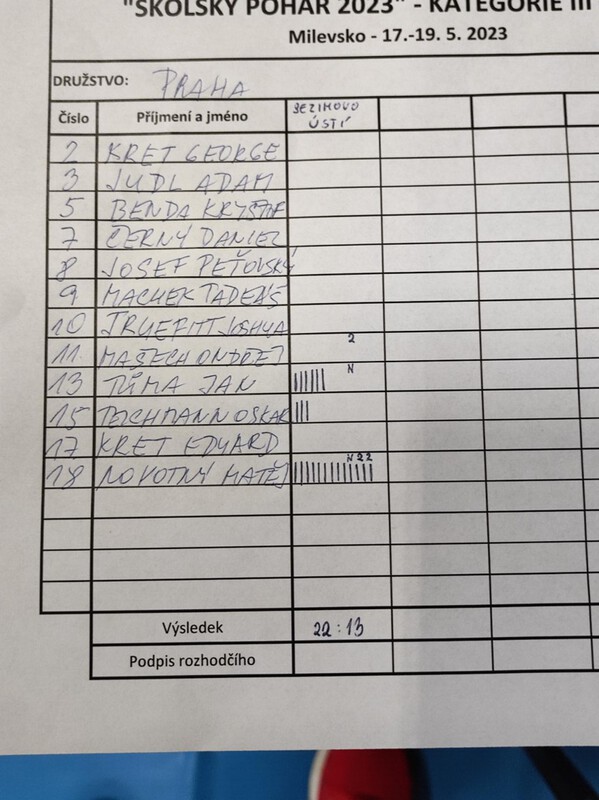 "ŠKOLSKÝ POHÁR 2023" - KATEGORIE III
Milevsko - 17.-19. 5. 2023
DRUŽSTVO: PRAHA
Číslo Příjmení a jméno SEZIMOVO ÚSTÍ
2 KRET GEORGE
3 JUDL ADAM
5 BENDA KRYŠTOF
7 ČERNÝ DANIEL
8 JOSEF PEŤOVSKÝ
9 MACHEK TADEÁŠ
10 TRUEFITT JOSHUA
11. MAŠECH ONDŘEJ 2
13 TŮMA JAN N ||||||
15 TEICHMANN OSKAR |||
17 KRET EDUARD
18 NOVOTNÝ MATĚJ N 2 2
Výsledek 22:13
Podpis rozhodčího